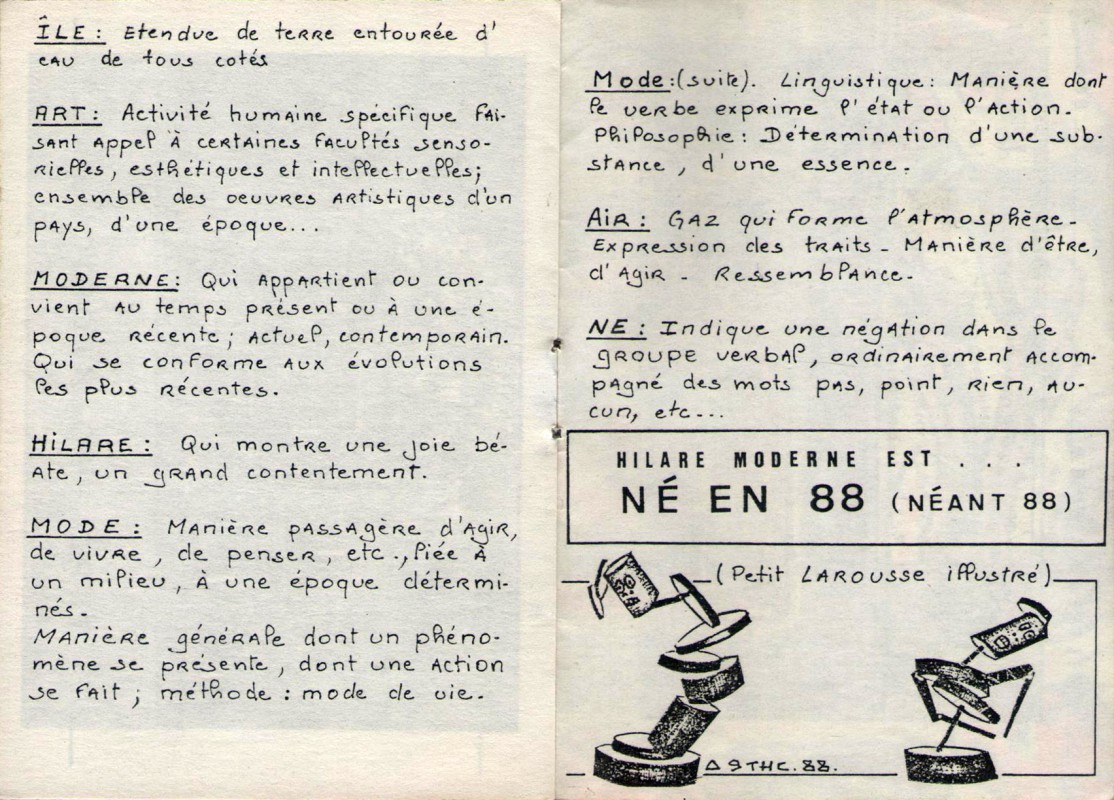 ÎLE : Etendue de terre entourée d'
eau de tous cotés
ART : Activité humaine spécifique fai-
sant appel à certaines facultés senso-
rielles, esthétiques et intellectuelles;
ensemble des oeuvres artistiques d'un
pays, d'une époque...
MODERNE : Qui appartient ou con-
vient au temps présent ou à une é-
poque récente ; actuel, contemporain.
Qui se conforme aux évolutions
les plus récentes.
HILARE : Qui montre une joie bé-
ate, un grand contentement.
MODE : Manière passagère d'agir,
de vivre, de penser, etc., liée à
un milieu, à une époque détermi-
nés.
Manière générale dont un phéno-
mène se présente, dont une action
se fait ; méthode : mode de vie.
Mode :(suite). Linguistique : Manière dont
le verbe exprime l'état ou l'action.
Philosophie : Détermination d'une sub-
stance, d'une essence.
Air : Gaz qui forme l'atmosphère-
Expression des traits - Manière d'être,
d'agir - Ressemblance-
NE : Indique une négation dans le
groupe verbal, ordinairement accom-
pagné des mots pas, point, rien, au-
cun, etc...
HILARE MODERNE EST . . .
NÉ EN 88 (NÉANT 88)
(Petit LAROUSSE illustré)
88.